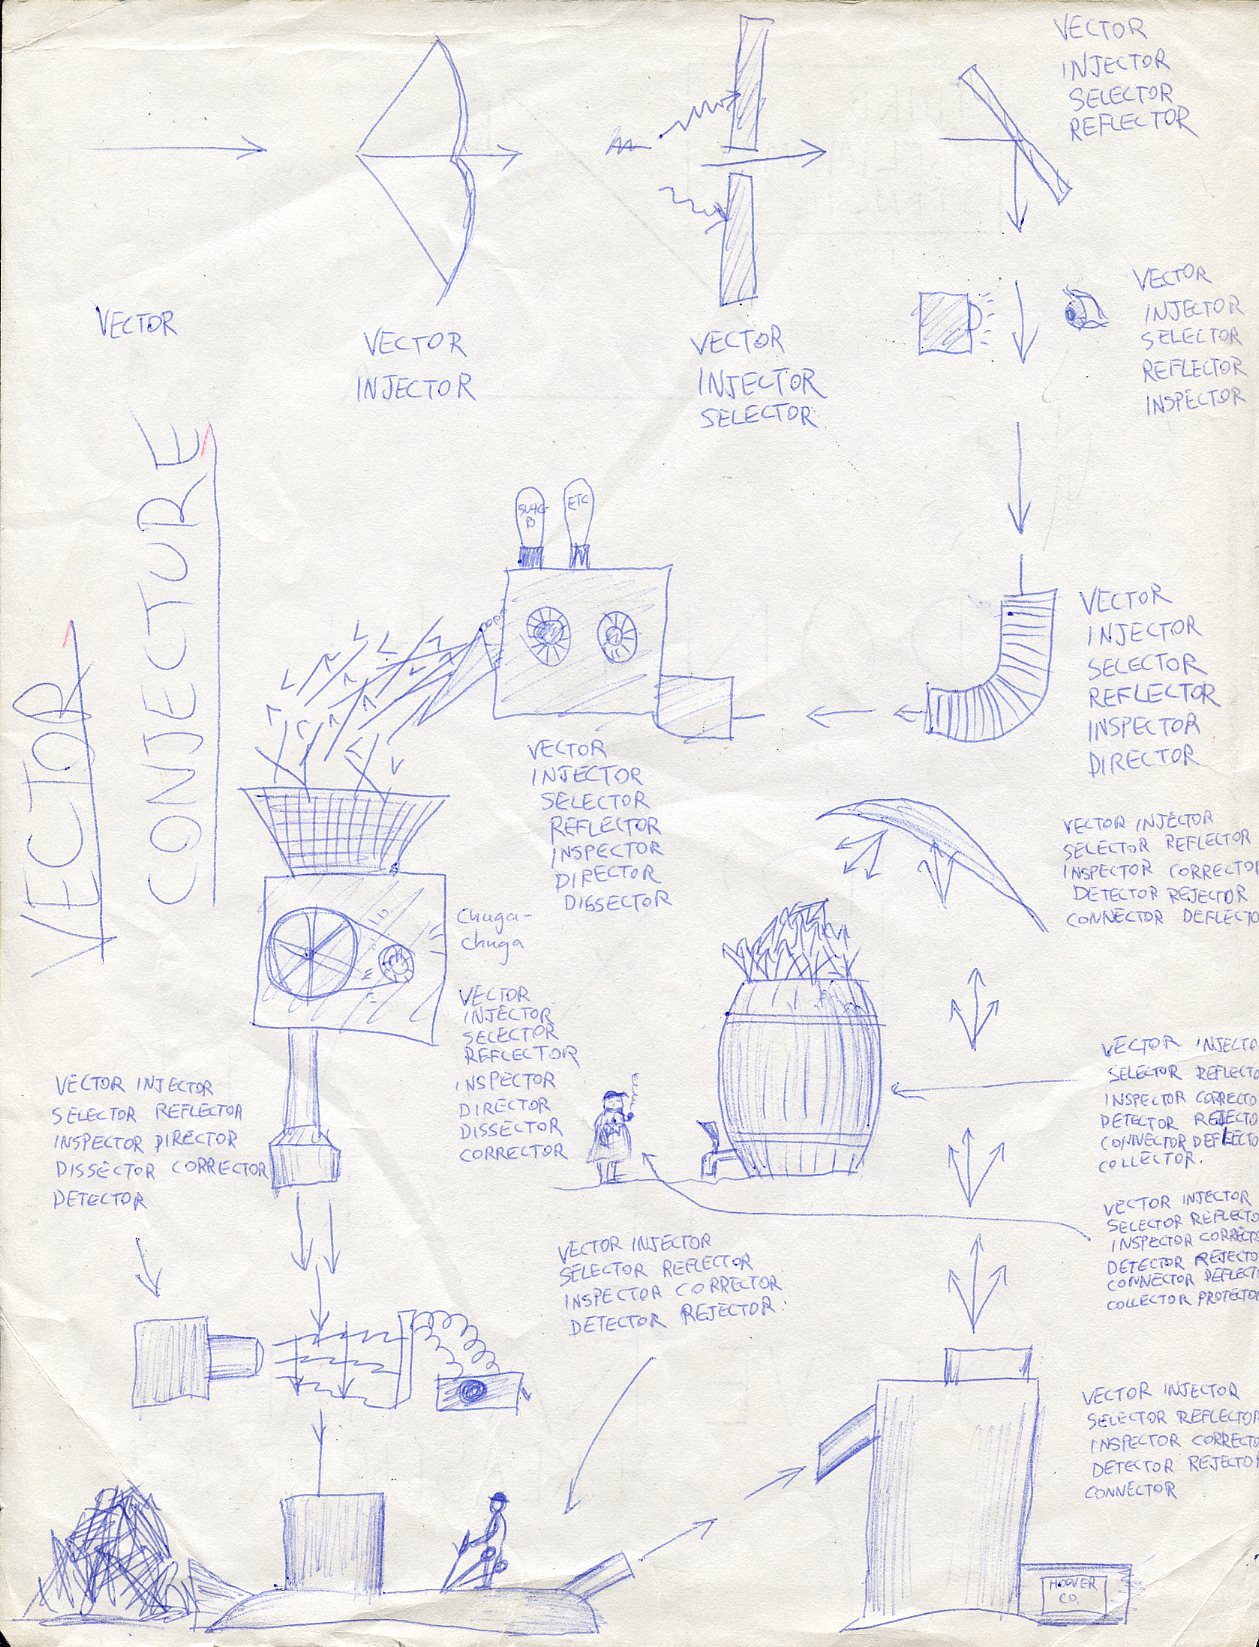 VECTOR
INJECTOR
SELECTOR
REFLECTOR
VECTOR
VECTOR
INJECTOR
VECTOR
INJECTOR
SELECTOR
VECTOR
INJECTOR
SELECTOR
REFLECTOR
INSPECTOR
VECTOR
CONJECTURE
ETC
VECTOR
INJECTOR
SELECTOR
REFLECTOR
INSPECTOR
DIRECTOR
VECTOR
INJECTOR
SELECTOR
REFLECTOR
INSPECTOR
DIRECTOR
DISSECTOR
VECTOR INJECTOR
SELECTOR REFLECTOR
INSPECTOR CORRECTOR
DETECTOR REJECTOR
CONNECTOR DEFLECTO
Chuga-
chuga
VECTOR
INJECTOR
SELECTOR
REFLECTOR
INSPECTOR
DIRECTOR
DISSECTOR
CORRECTOR
VECTOR INJECTO
SELECTOR REFLECTO
INSPECTOR CORRECTO
DETECTOR REJECTO
CONNECTOR DEFLECTO
COLLECTOR.
VECTOR INJECTOR
SELECTOR REFLECTOR
INSPECTOR DIRECTOR
DISSECTOR CORRECTOR
DETECTOR
VECTOR INJECTOR
SELECTOR REFLECTO
INSPECTOR CORRECTO
DETECTOR REJECTO
CONNECTOR DEFLECTO
COLLECTOR PROTECTOR
VECTOR INJECTOR
SELECTOR REFLECTOR
INSPECTOR CORRECTOR
DETECTOR REJECTOR.
VECTOR INJECTOR
SELECTOR REFLECTOR
INSPECTOR CORRECTO
DETECTOR REJECTOR
CONNECTOR
HOOVER
CO.